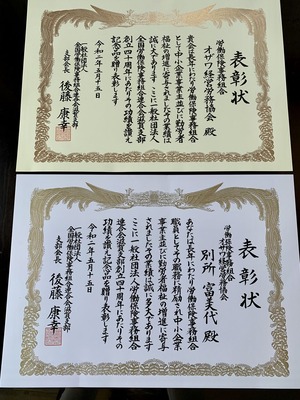 表彰状
労働保険事務組合
オザワ経営労務協会 殿
貴会は長年にわたり労働保険事務組合
として中小企業事業主並びに勤労者
福祉の増進に寄与されました その業績は
誠に多大であります ここに一般社団法人
全国労働保険事務組合連合会滋賀支部
創立四十周年にあたりその功績を讃え
記念品を贈り表彰します
令和二年五月十五日
一般社団法人
全国労働保険事務組合連合会滋賀支部
支部会長 後藤康幸
表彰状
労働保険事務組合
オザワ経営労務協会
別所 富美代 殿
あなたは長年にわたり労働保険事務組合
職員としてその職務に精励され中小企業
事業主並びに勤労者福祉の増進に寄与
されました その業績は誠に多大であります
ここに一般社団法人全国労働保険事務組合
連合会滋賀支部創立四十周年にあたりその
功績を讃え記念品を贈り表彰します
令和二年五月十五日
一般社団法人
全国労働保険事務組合連合会滋賀支部
支部会長 後藤康幸